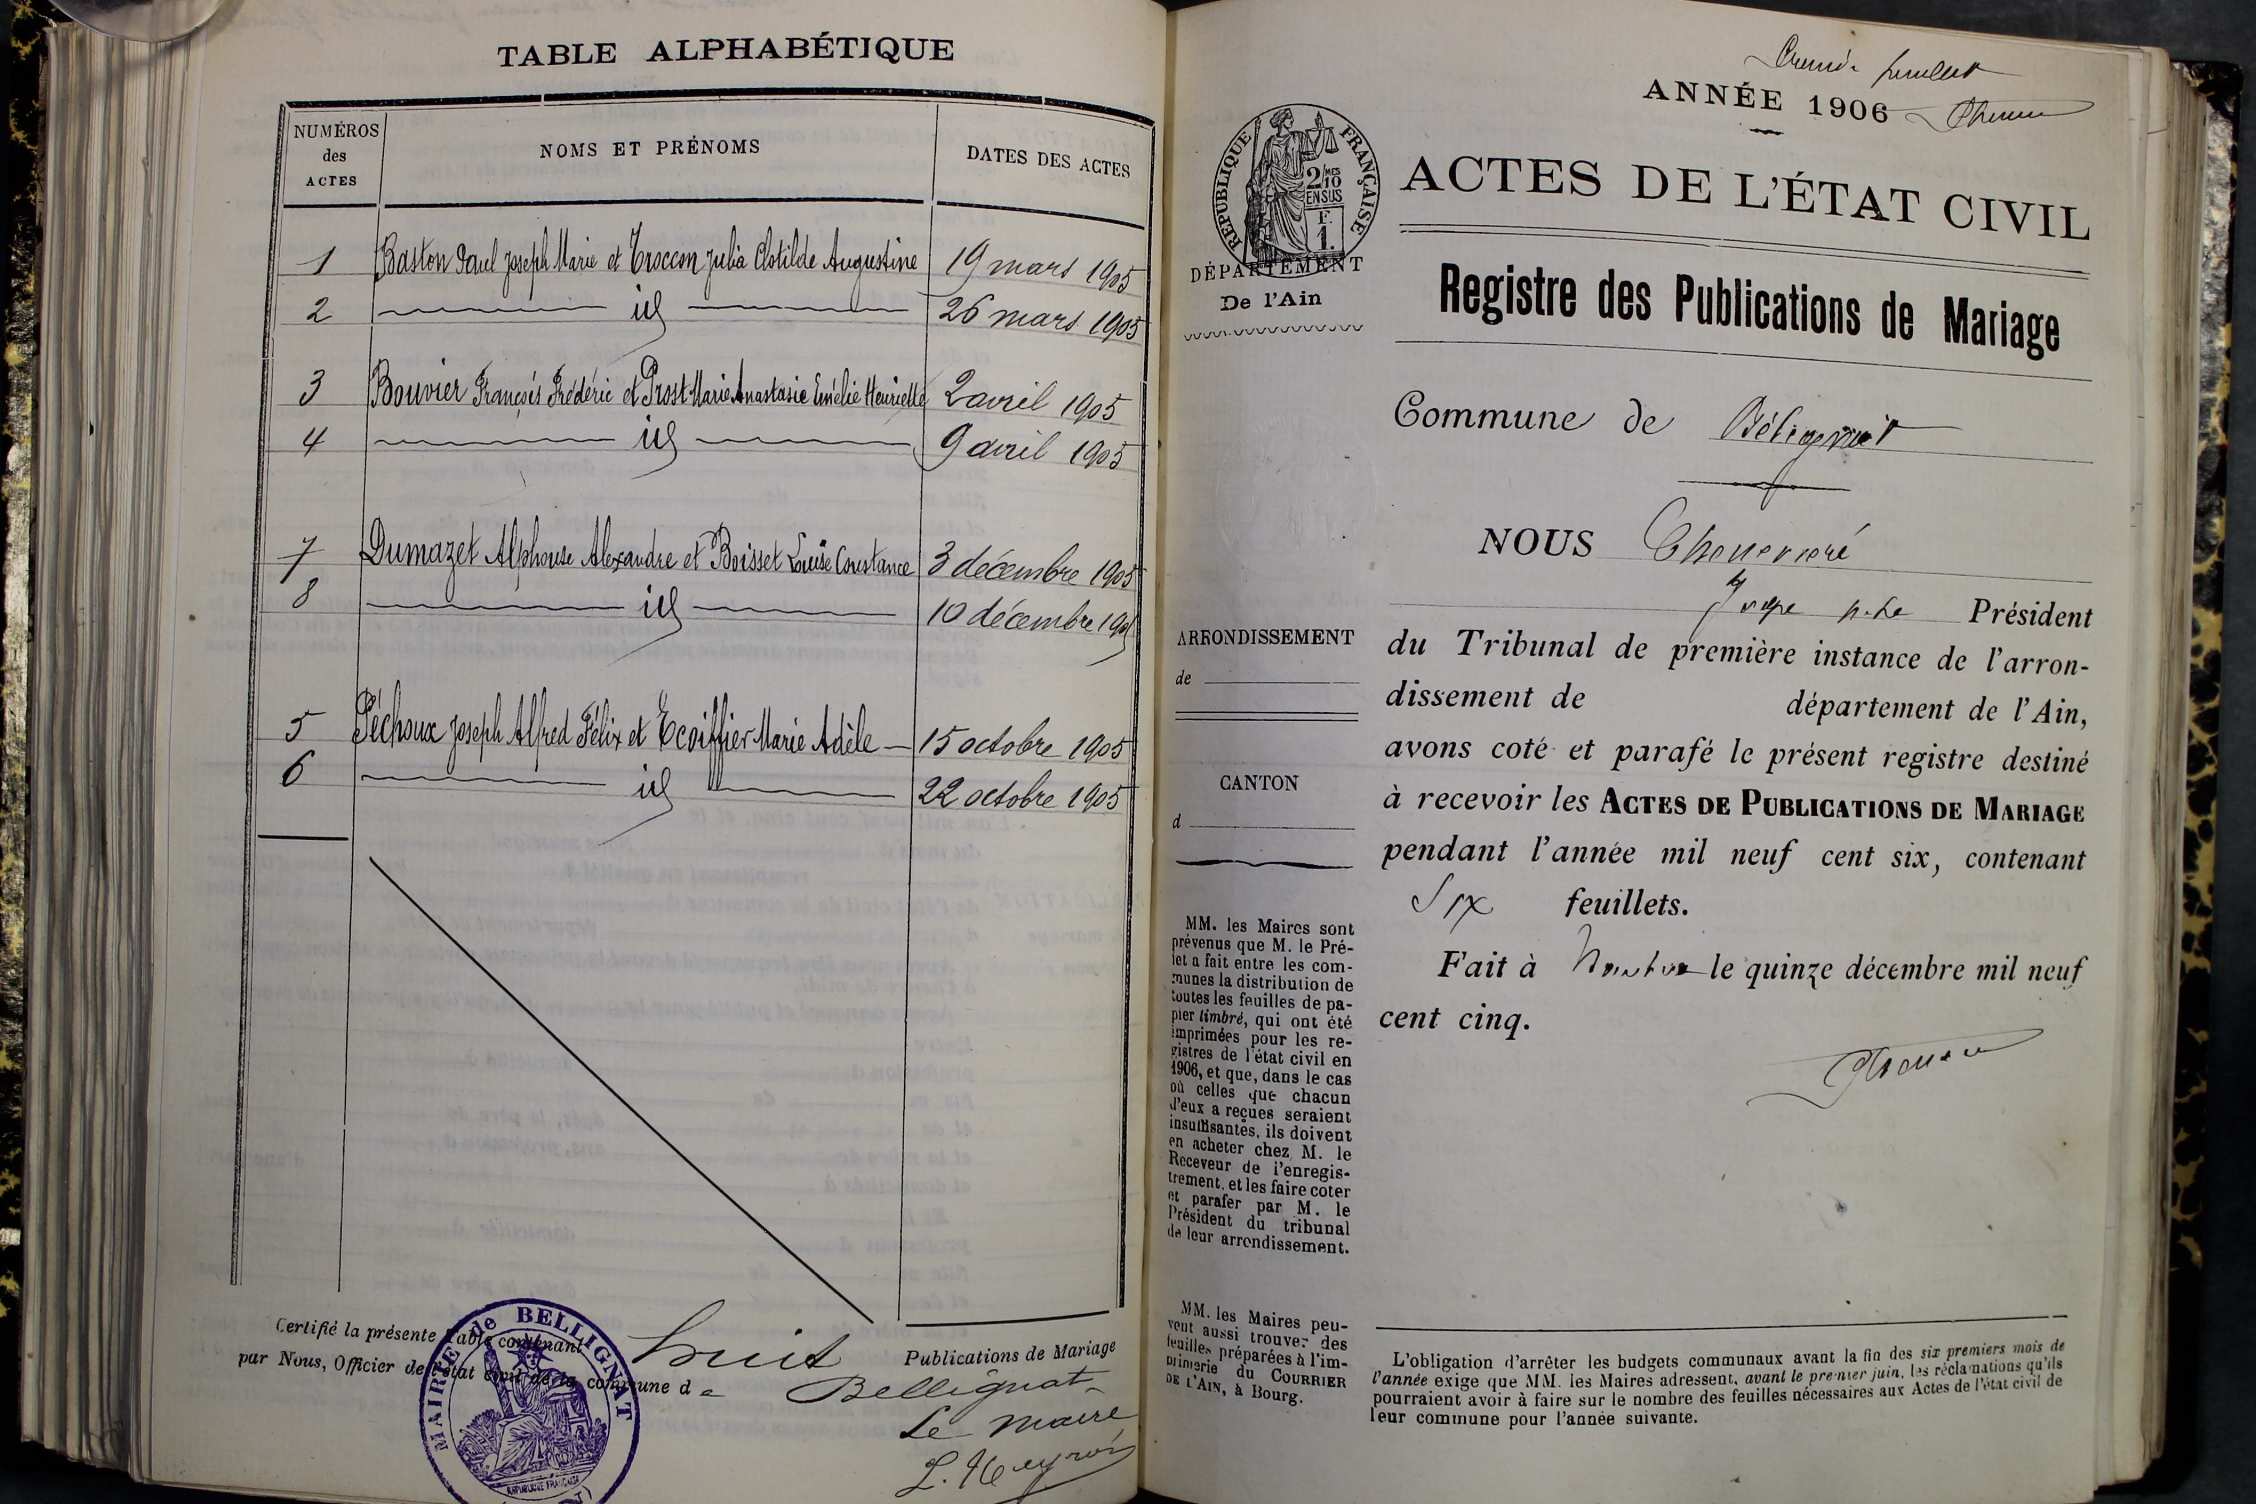 TABLE ALPHABÉTIQUE
NUMÉROS des ACTES
NOMS ET PRÉNOMS
DATES DES ACTES
1 Baston Paul Joseph Marie et Troccon Julia Clotilde Augustine 19 mars 1905
2 id 26 mars 1905
3 Bouvier François Frédéric et Prost Marie Anastasie Emélie Henriette 2 avril 1905
4 id 9 avril 1905
7 Dumazet Alphonse Alexandre et Boisset Louise Constance 3 décembre 1905
8 id 10 décembre 1905
5 Péchoux Joseph Alfred Félix et Ecoiffier Marie Adèle 15 octobre 1905
6 id 22 octobre 1905
Certifié la présente Table contenant huit Publications de Mariage
par Nous, Officier de l'état civil de la commune de Bellignat
Le maire
MAIRIE de BELLIGNAT
RÉPUBLIQUE FRANÇAISE
ANNÉE 1906
RÉPUBLIQUE FRANÇAISE
2/10MES
EN SUS
F.
1.
DÉPARTEMENT
De l'Ain
ARRONDISSEMENT
de
CANTON
d
MM. les Maires sont
prévenus que M. le Pré-
fet a fait entre les com-
munes la distribution de
toutes les feuilles de pa-
pier timbré, qui ont été
imprimées pour les re-
gistres de l'état civil en
1906, et que, dans le cas
où celles que chacun
d'eux a reçues seraient
insuffisantes, ils doivent
en acheter chez M. le
Receveur de l'enregis-
trement, et les faire coter
et parafer par M. le
Président du tribunal
de leur arrondissement.
MM. les Maires peu-
vent aussi trouver des
feuilles préparées à l'im-
primerie du COURRIER
DE L'AIN, à Bourg.
ACTES DE L'ÉTAT CIVIL
Registre des Publications de Mariage
Commune de Béligna​t
NOUS
Juge Président
du Tribunal de première instance de l'arron-
dissement de département de l'Ain,
avons coté et parafé le présent registre destiné
à recevoir les ACTES DE PUBLICATIONS DE MARIAGE
pendant l'année mil neuf cent six, contenant
Six feuillets.
Fait à Nantua le quinze décembre mil neuf
cent cinq.
L'obligation d'arrêter les budgets communaux avant la fin des six premiers mois de
l'année exige que MM. les Maires adressent, avant le premier juin, les réclamations qu'ils
pourraient avoir à faire sur le nombre des feuilles nécessaires aux Actes de l'état civil de
leur commune pour l'année suivante.